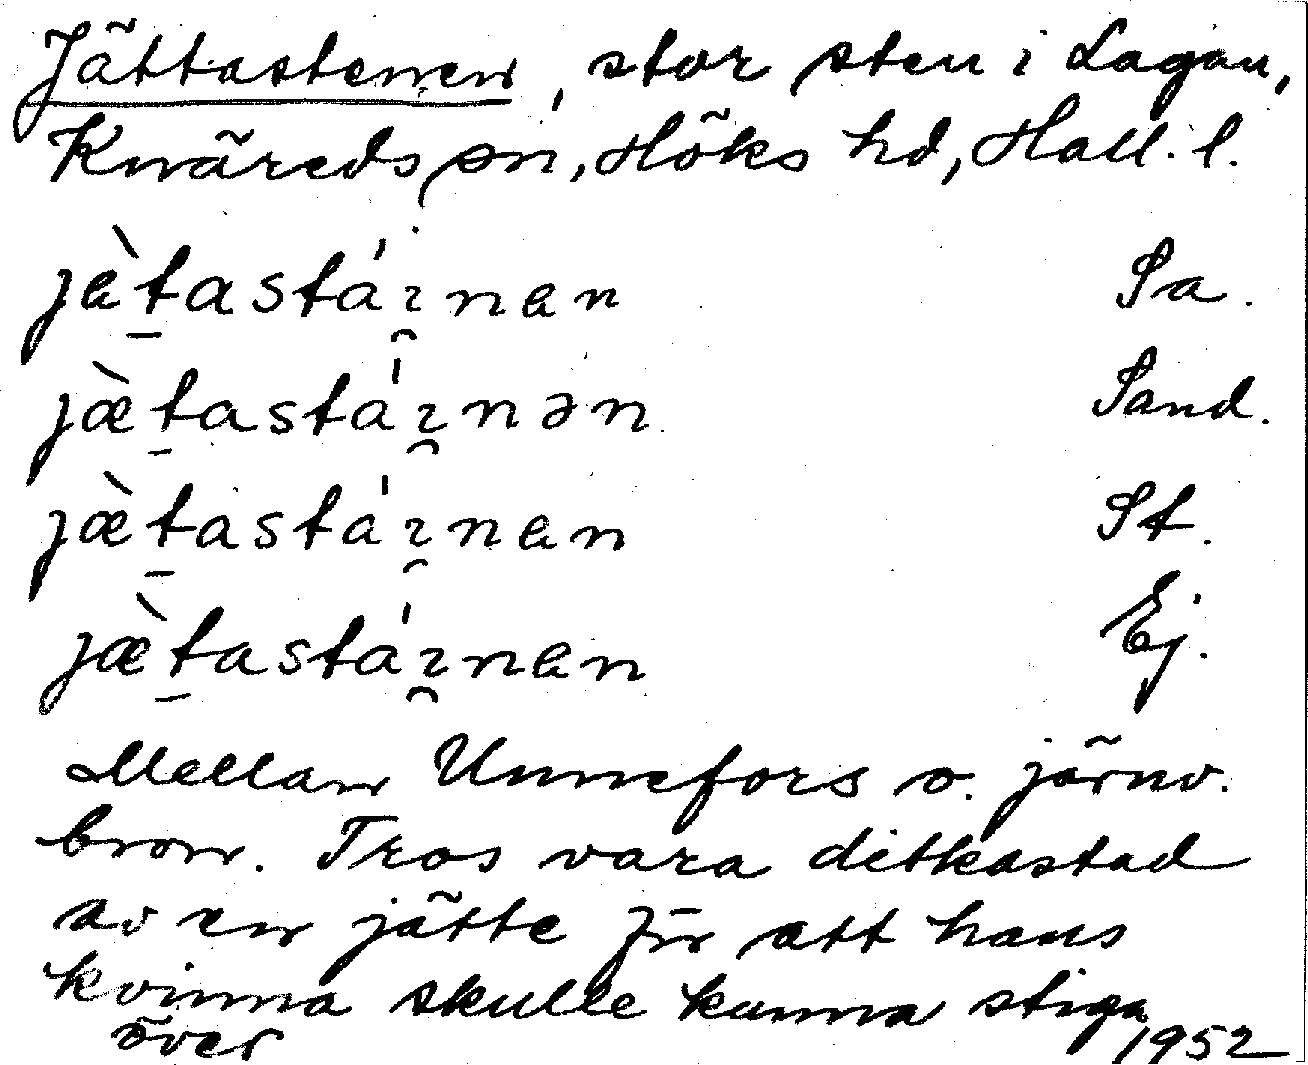 Jättastenen, stor sten i Lagan,
Knäreds sn, Höks hd, Hall. l.
jèt̠astáı̯nen Sa.
jæ̀t̠astáı̯nən Sand.
jæ̀t̠astáı̯nen St.
jæ̀t̠astáı̯nen Ej.
Mellan Unnefors o. järnv.
bron. Tros vara ditkastad
av en jätte för att hans
kvinna skulle kunna stiga
över 1952